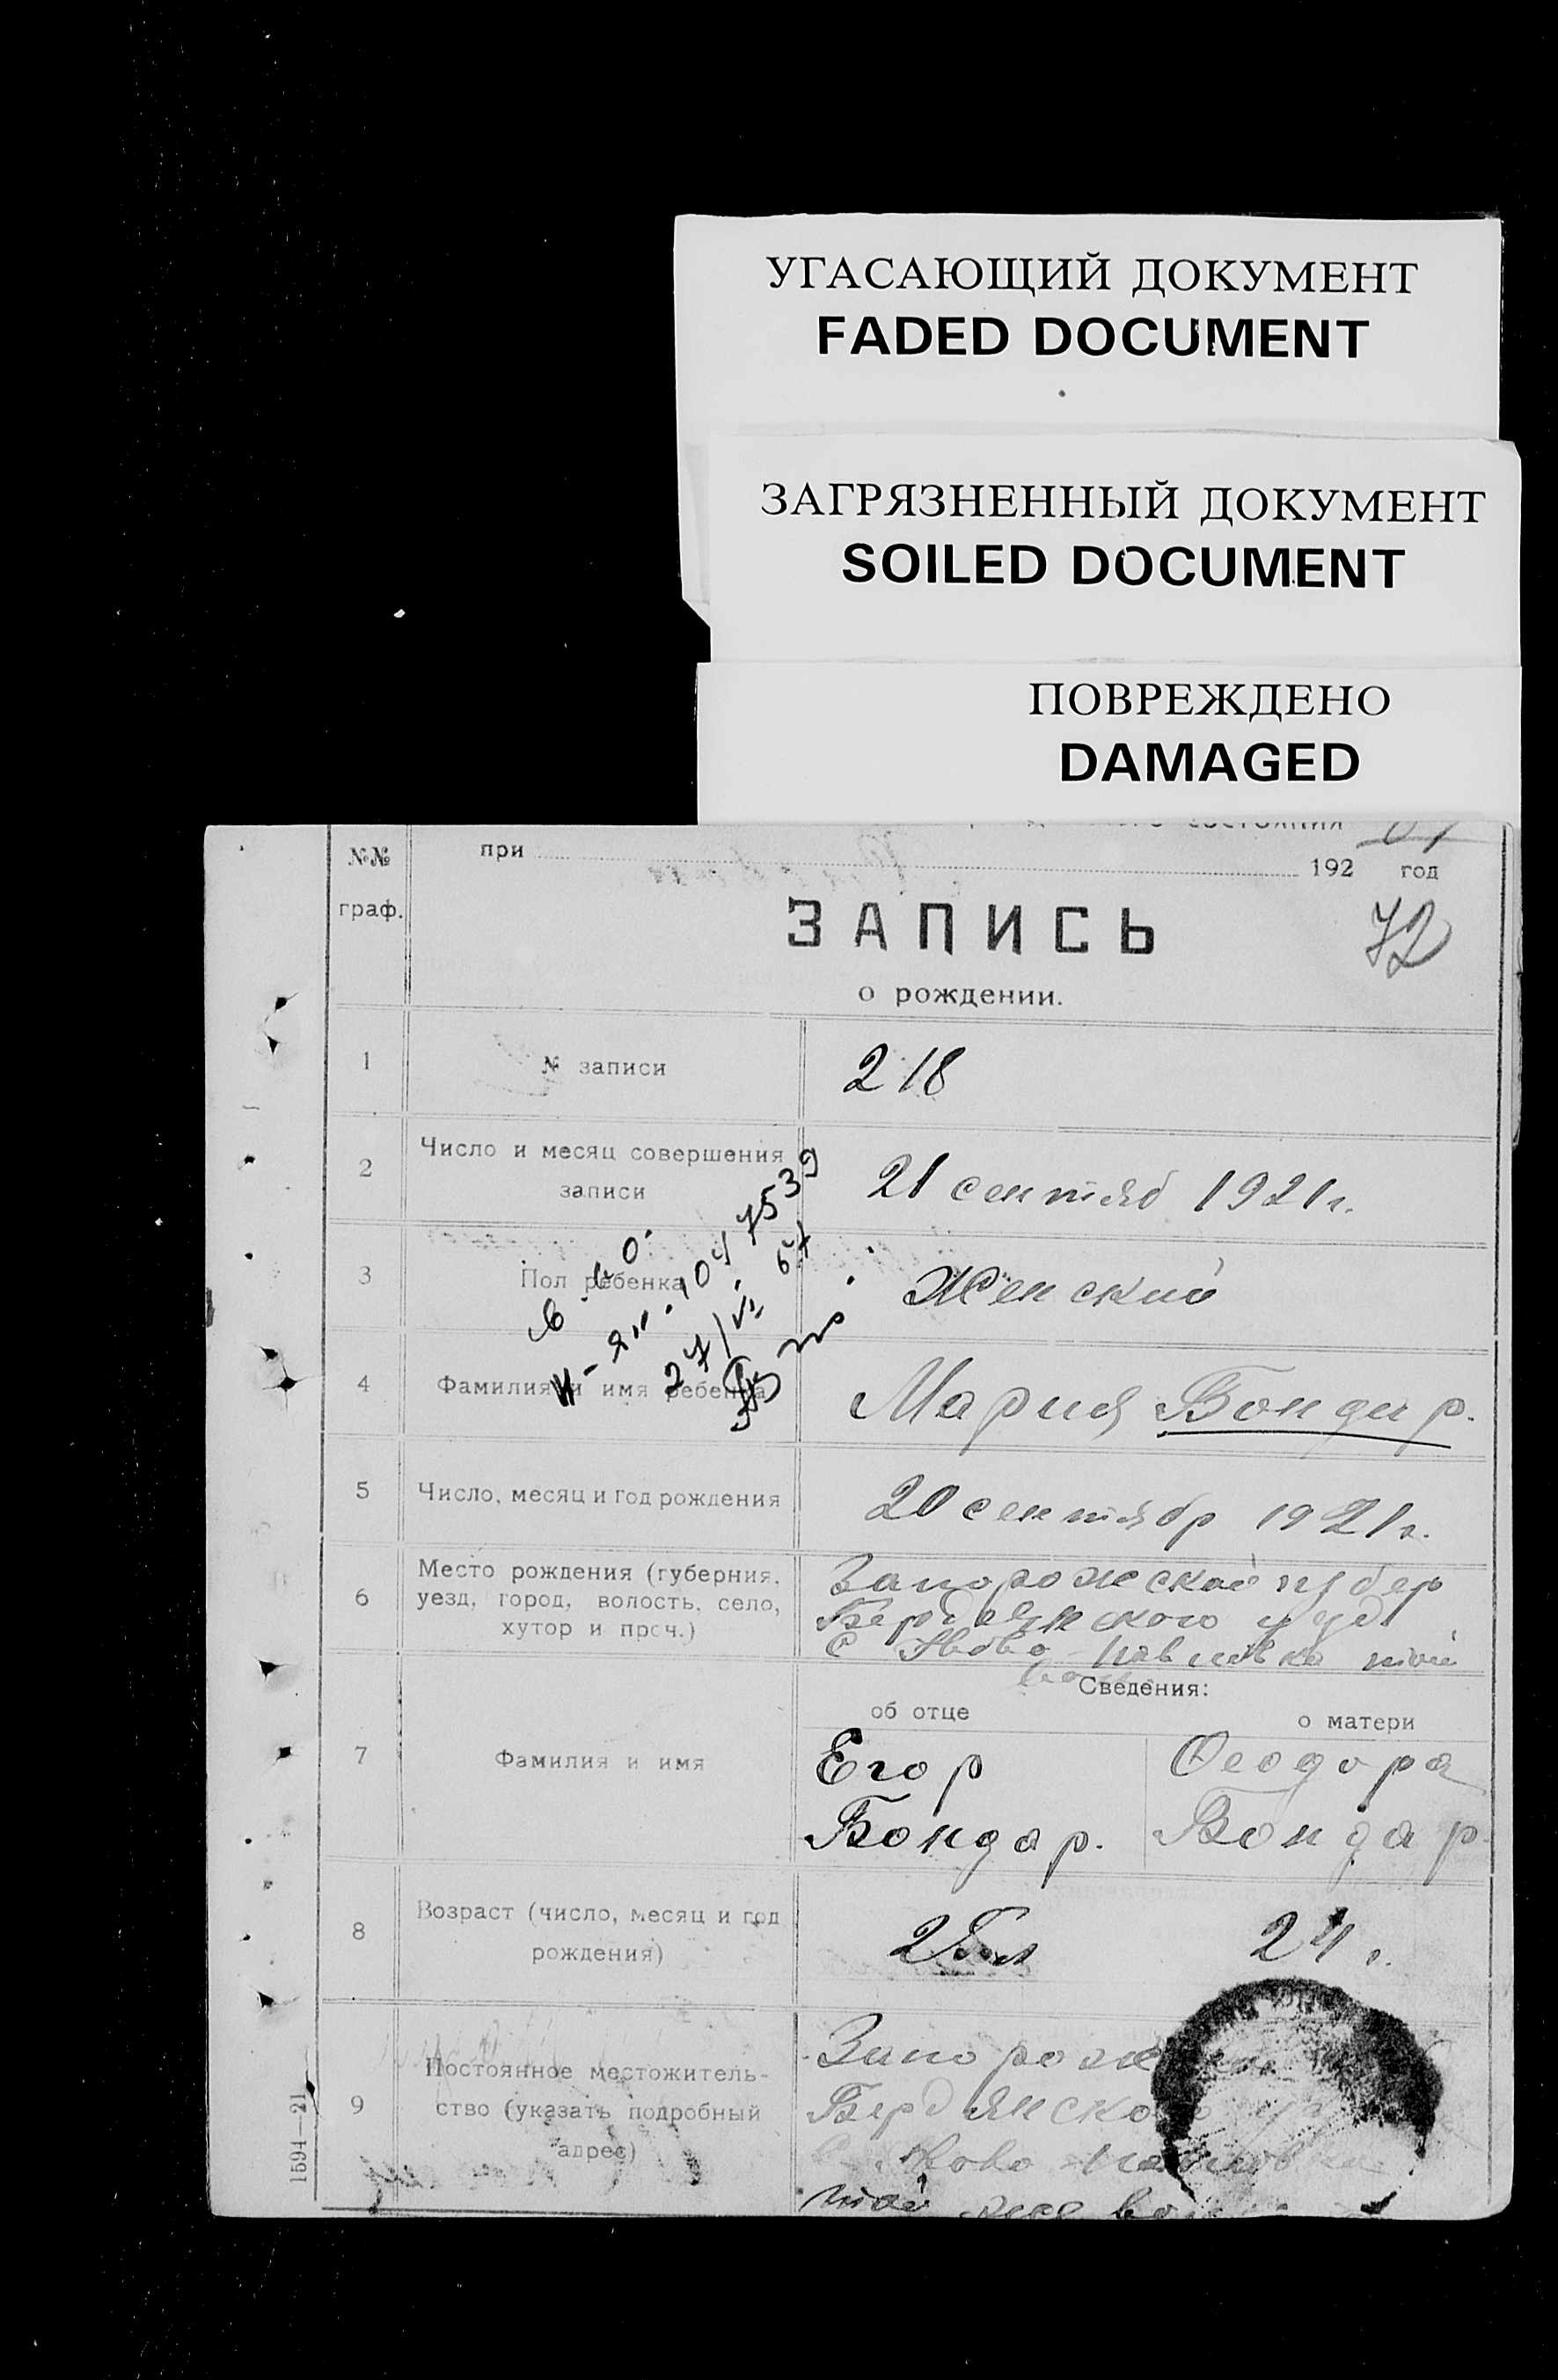 УГАСАЮЩИЙ ДОКУМЕНТ
FADED DOCUMENT
ЗАГРЯЗНЕННЫЙ ДОКУМЕНТ
SOILED DOCUMENT
ПОВРЕЖДЕНО
DAMAGED
состояния
№№
граф.
при 192 год
72
ЗАПИСЬ
о рождении.
1 № записи 218
2 Число и месяц совершения
записи
21 сентяб 1921 г.
3 Пол ребенка Женский
4 Фамилия и имя ребенка Мария Бондар.
5 Число, месяц и год рождения 20 сентябр 1921 г.
6 Место рождения (губерния,
уезд, город, волость, село,
хутор и проч.)
Запорожской губер
Бердянского уезд
с Ново-Павловка той
Сведения:
об отце о матери
7 Фамилия и имя
Егор Феодора
Бондар. Бондар
8 Возраст (число, месяц и год
рождения)
24 г.
9 Постоянное местожитель-
ство (указать подробный
адрес)
Бердянского
Ново-Павловка
той же
27/VI 67
1594—21